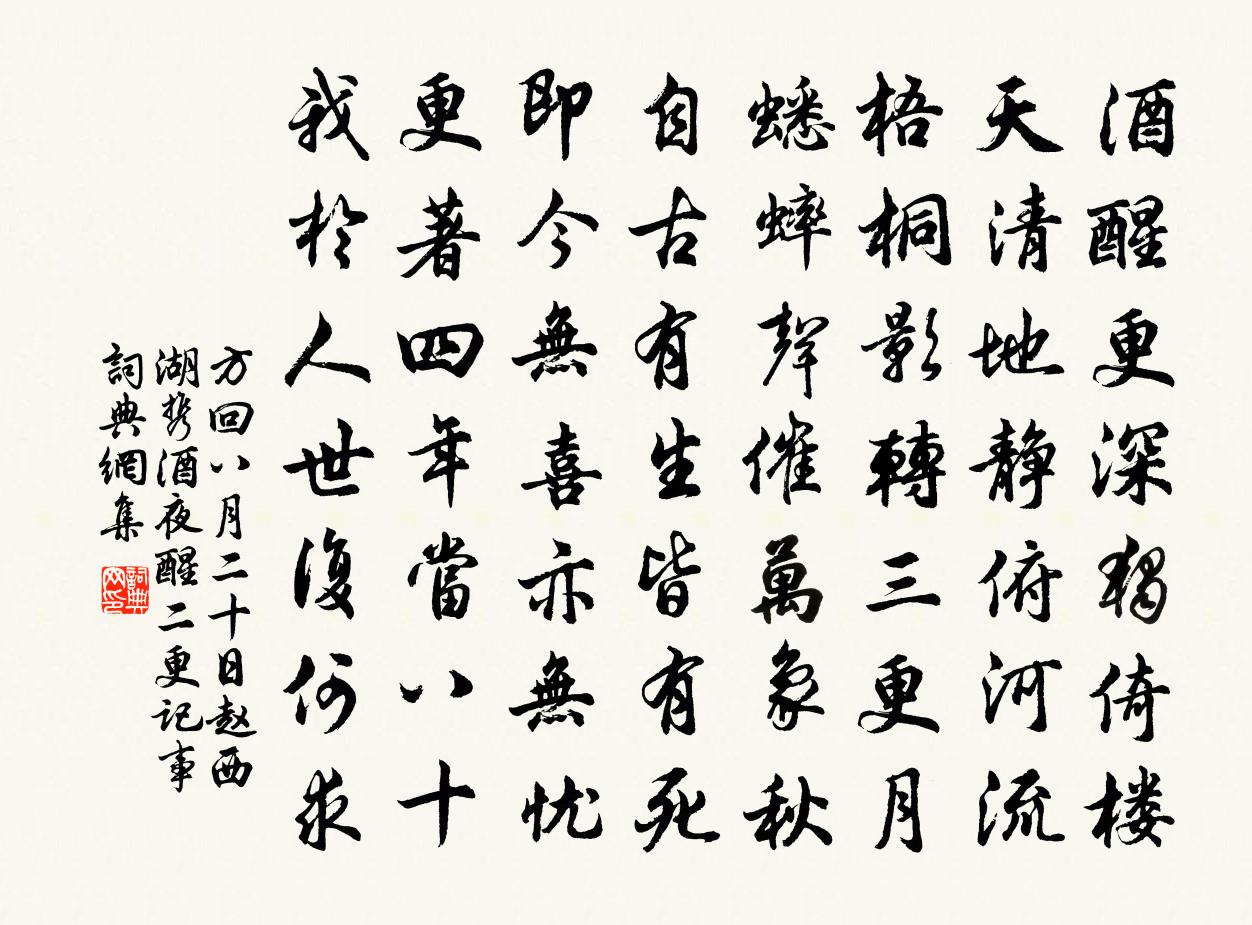 酒醒更深獨倚楼
天清地静俯河流
梧桐影轉三更月
蟋蟀聲催萬象秋
自古有生皆有死
即今無喜亦無忧
更著四年當八十
我於人世復何求
方回八月二十日赵西
湖携酒夜醒二更记事
詞典網集
詞典
网印